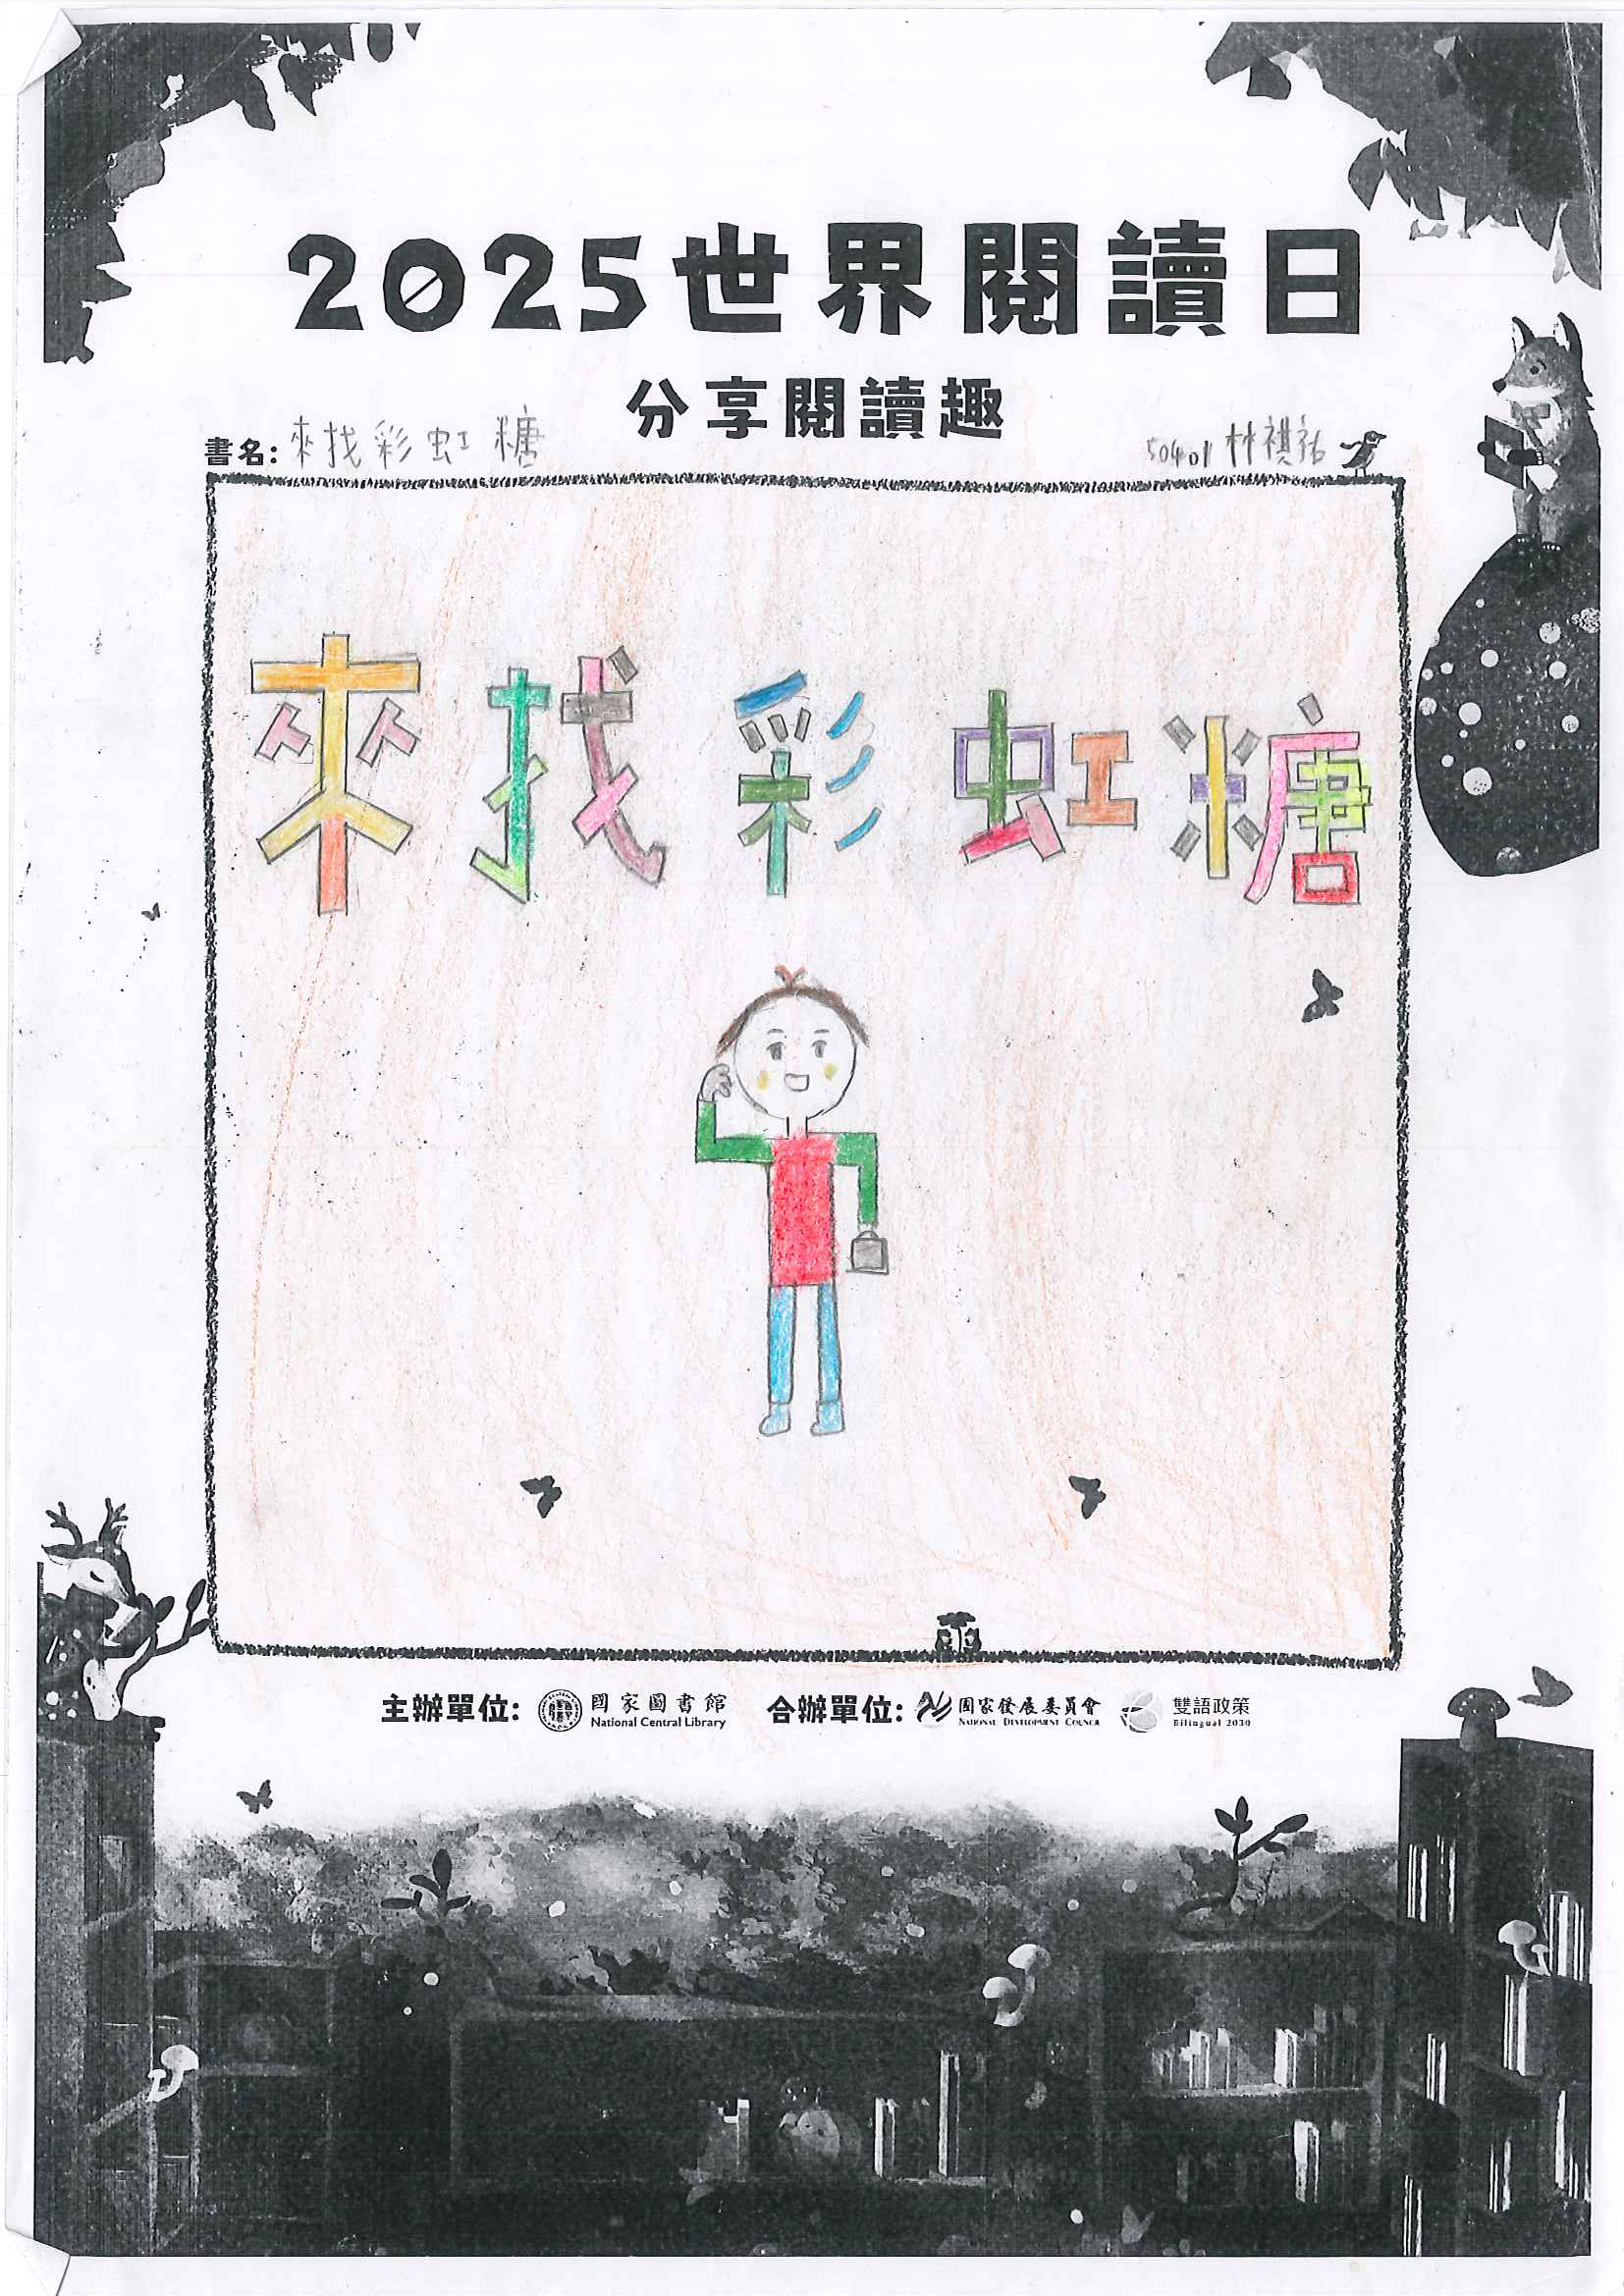 2025世界閱讀日
分享閱讀趣
書名: 來找彩虹糖
50401 林祺祐
來找彩虹糖
主辦單位: 國家圖書館 National Central Library 合辦單位: 國家發展委員會 National Development Council 雙語政策 Bilingual 2030